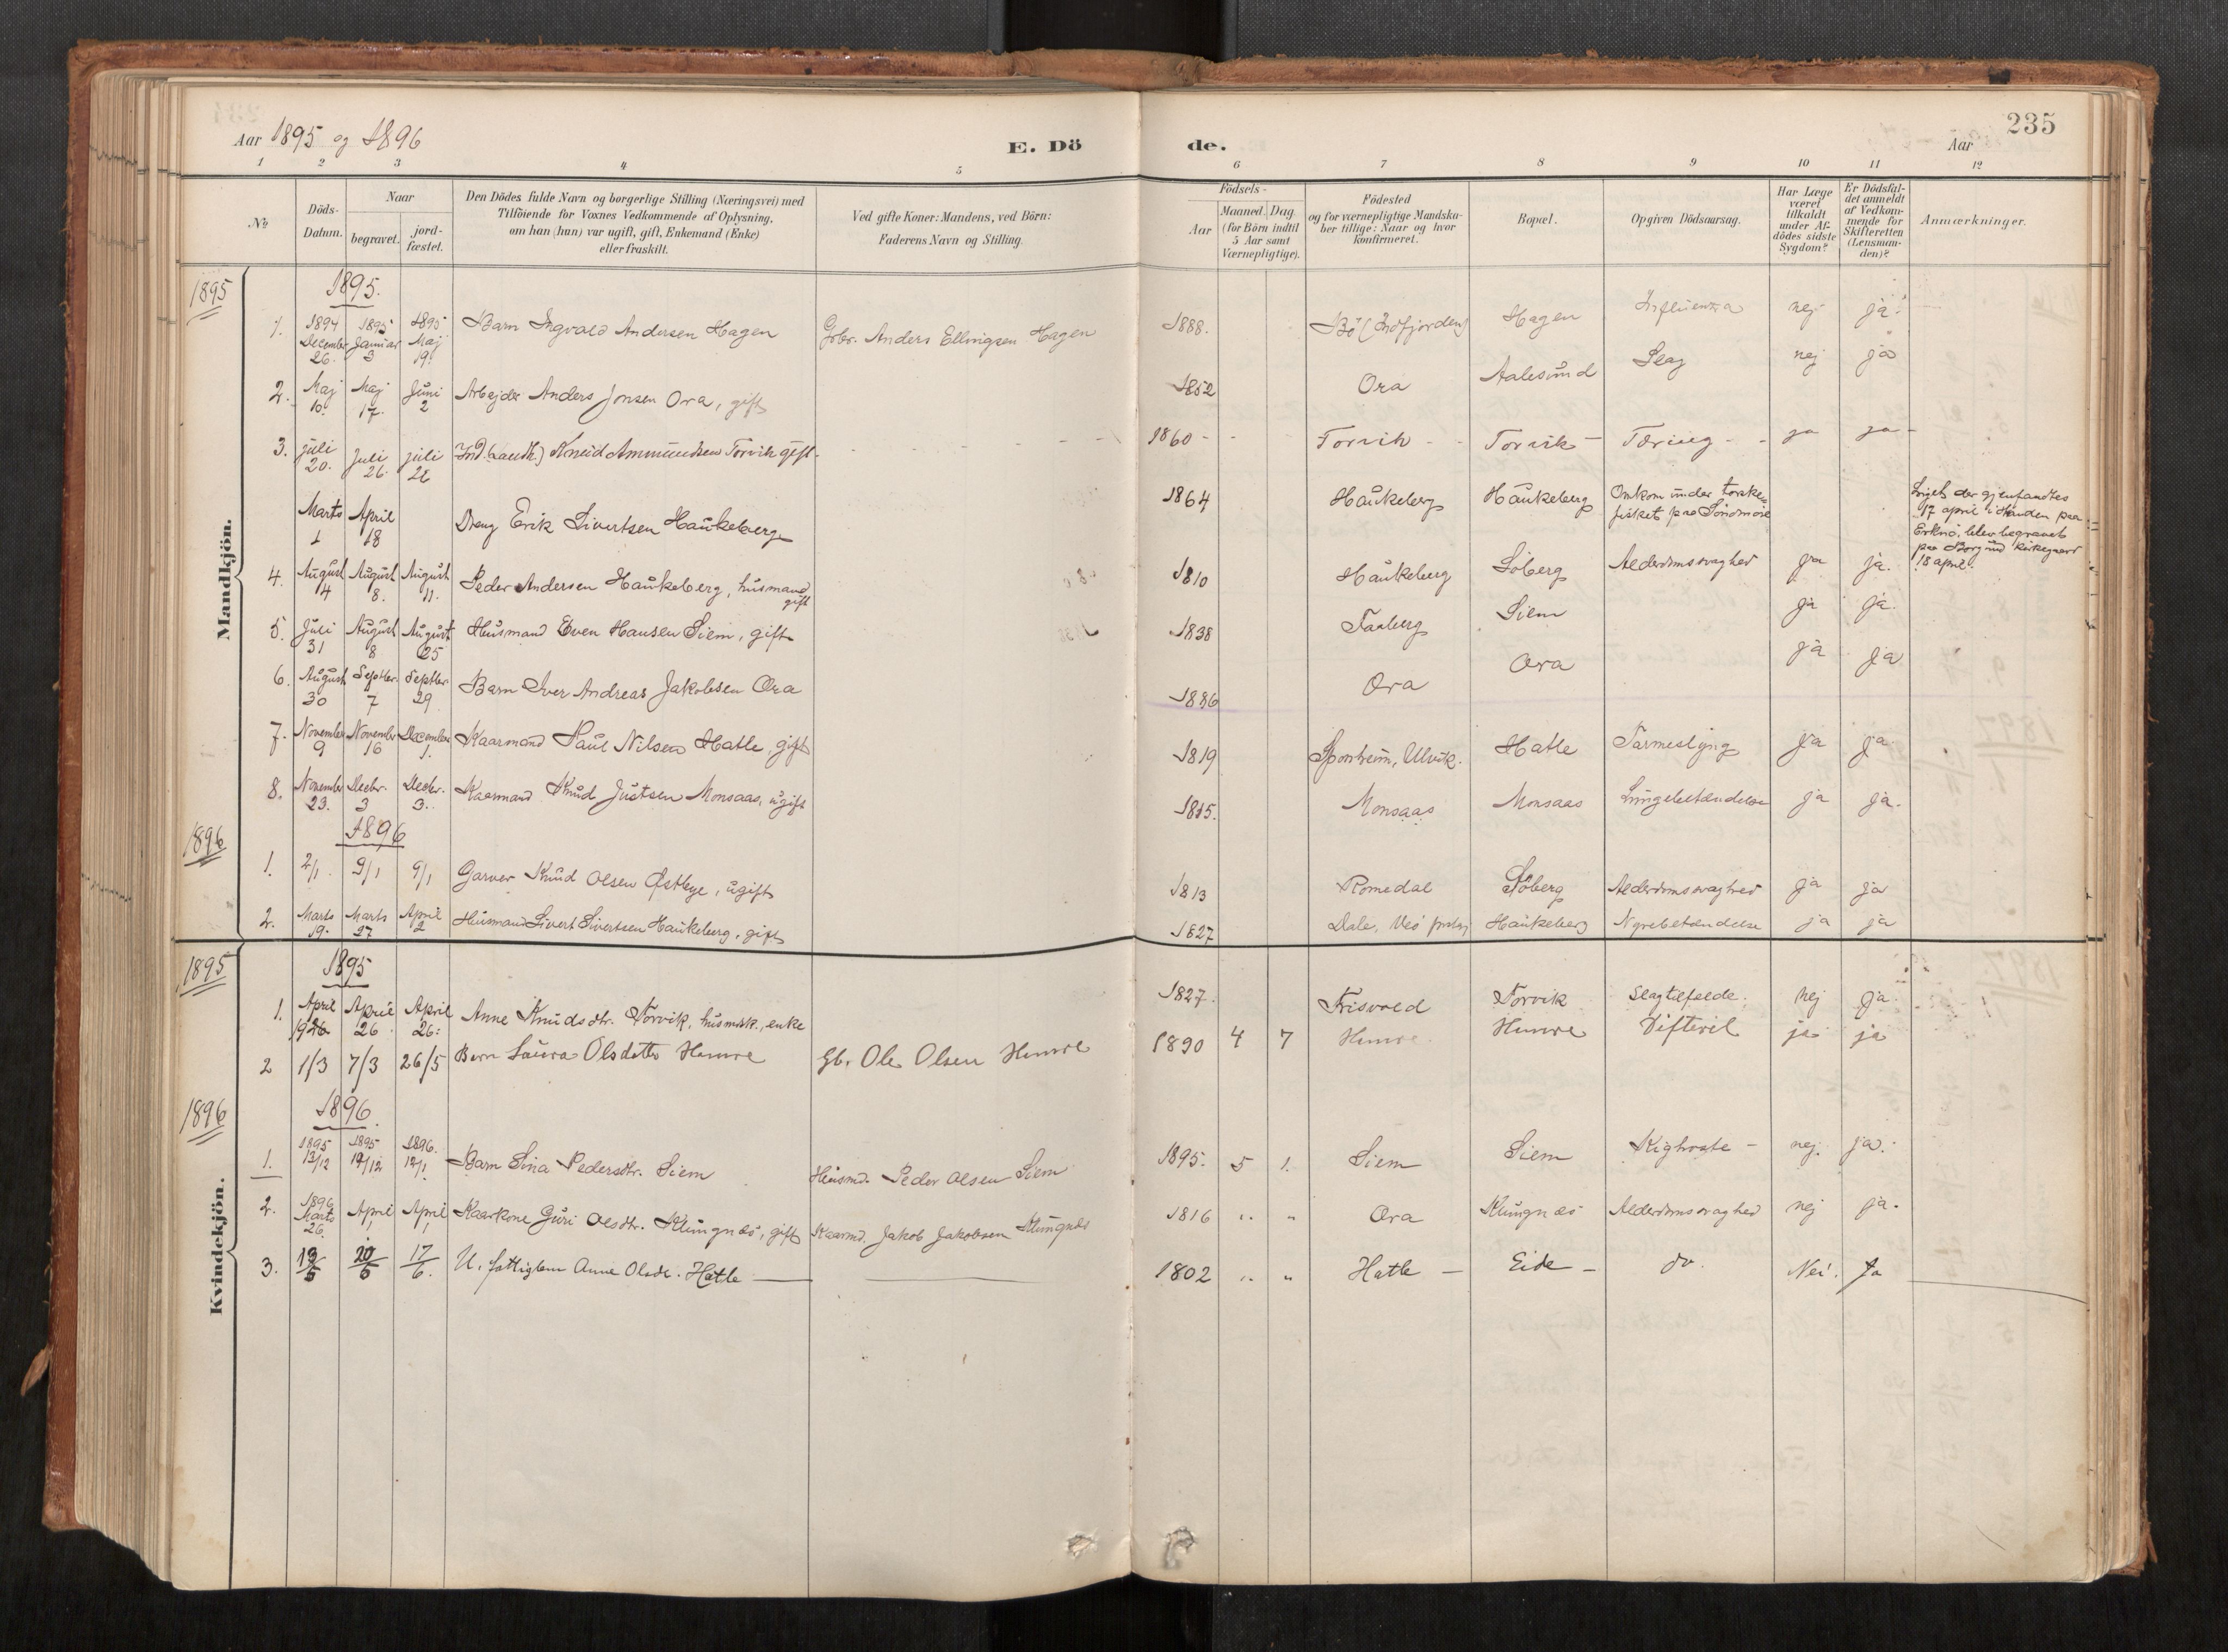 235
Aar 1895 og 1896 E. Dö de. Aar
1 2 3 4 5 6 7 8 9 10 11 12
No
Döds-Datum.
Naar
begravet.
jord-fæstet.
Den Dödes fulde Navn og borgerlige Stilling (Næringsvei) med
Tilföiende for Voxnes Vedkommende af Oplysning,
om han (hun) var ugift, gift, Enkemand (Enke)
eller fraskilt.
Ved gifte Koner: Mandens, ved Börn:
Faderens Navn og Stilling.
Födsels-
Aar
Maaned. Dag
(for Börn indtil
5 Aar samt
Værnepligtige).
Födested
og for værnepligtige Mandska-
ber tillige: Naar og hvor
konfirmeret.
Bopæl.
Opgiven Dödsaarsag.
Har Læge
været
tilkaldt
under Af-
dödes sidste
Sygdom?
Er Dödsfal-
det anmeldt
af Vedkom-
mende for
Skifteretten
(Lensman-
den)?
Anmærkninger.
Mandkjön.
1895 1895.
1. 1894 December 26. 1895 Januar 3 1895 Maj 19. Barn Ingvald Andersen Hagen Gbr. Anders Ellingsen Hagen 1888. Bö (Indfjorden) Hagen Influenza nej ja.
2. Maj 10. Maj 17. Juni 2 Arbejder Anders Jonsen Ora, gift 1852 Ora Aalesund Slag nej ja
3. juli 20. Juli 26. juli 28 Knud Ammundsen Torvik gift. 1860 - - Torvik - Torvik - Tæring - ja ja -
Marts 1 April 18 Dreng Erik Sivertsen Haukeberg 1864 Haukeberg Haukeberg Omkom under torske-
fisket paa Söndmöre
Liget der gjenfandtes
17 april i stranden paa
Erknö, blev begravet
paa Borgund kirkegaard
18 april.
4. August 4 August 8. August 11. Peder Andersen Haukeberg, husmand gift 1810 Haukeberg Söberg Alderdomssvaghed ja ja.
5. Juli 31 August 8 August 25 Husmand Even Hansen Siem, gift 1838 Faaberg Siem ja ja.
6. August 30 Septbr. 7 Septbr. 29 Barn Iver Andreas Jakobsen Ora 1886 Ora Ora ja ja
7. November 9 November 16 December 1. Kaarmand Paul Nilsen Hatle, gift 1819 Sponheim, Ulvik. Hatle Tarmeslyng ja ja.
8. November 23. Decbr. 3 Decbr. 3. Kaarmand Knud Justsen Monsaas, ugift 1815. Monsaas Monsaas Lungebetændelse ja ja.
1896 1896
1. 2/1. 9/1 9/1 Garver Knud Olsen Østbye, ugift 1813 Romedal Söberg Alderdomssvaghed ja ja
2. Marts 19. Marts 27 April 2 Husmand Sivert Sivertsen Haukeberg, gift 1827 Dale, Veö Haukeberg Nyrebetændelse ja ja
Kvindekjön.
1895 1895
1. April April 26 April 26. Anne Knudsdtr. Torvik, husmdsk., enke 1827. Frisvold Torvik Slagtilfælde. Nej ja
2 1/3 7/3 26/5 Barn Laura Olsdatter Hunve Gbr. Ole Olsen Hunve 1890 4 7 Hunve Hunve Difterit ja ja
1896 1896.
1. 1895 13/12 1895 19/12 1896. 12/1 Barn Sina Pedersdtr. Siem Husmd. Peder Olsen Siem 1895. 5 1. Siem Siem Kighoste - nej. ja.
2. 1896 Marts 26. April 1 April 1 Kaarkone Guri Olsdtr. Klungnæs, gift Kaarmd. Jakob Jakobsen Klungnæs 1816 " " Ora Klungnæs Alderdomssvaghed nej ja.
3. 13/5 20/5 17/6. U. fattiglem Anne Olsdtr. Hatle 1802 " " Hatle - Eide - do. Nei. Ja